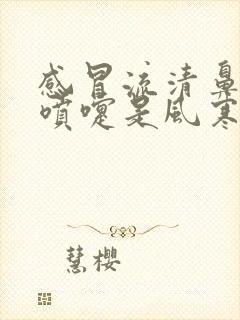 感冒流清鼻
噴嚏是風寒
慧櫻